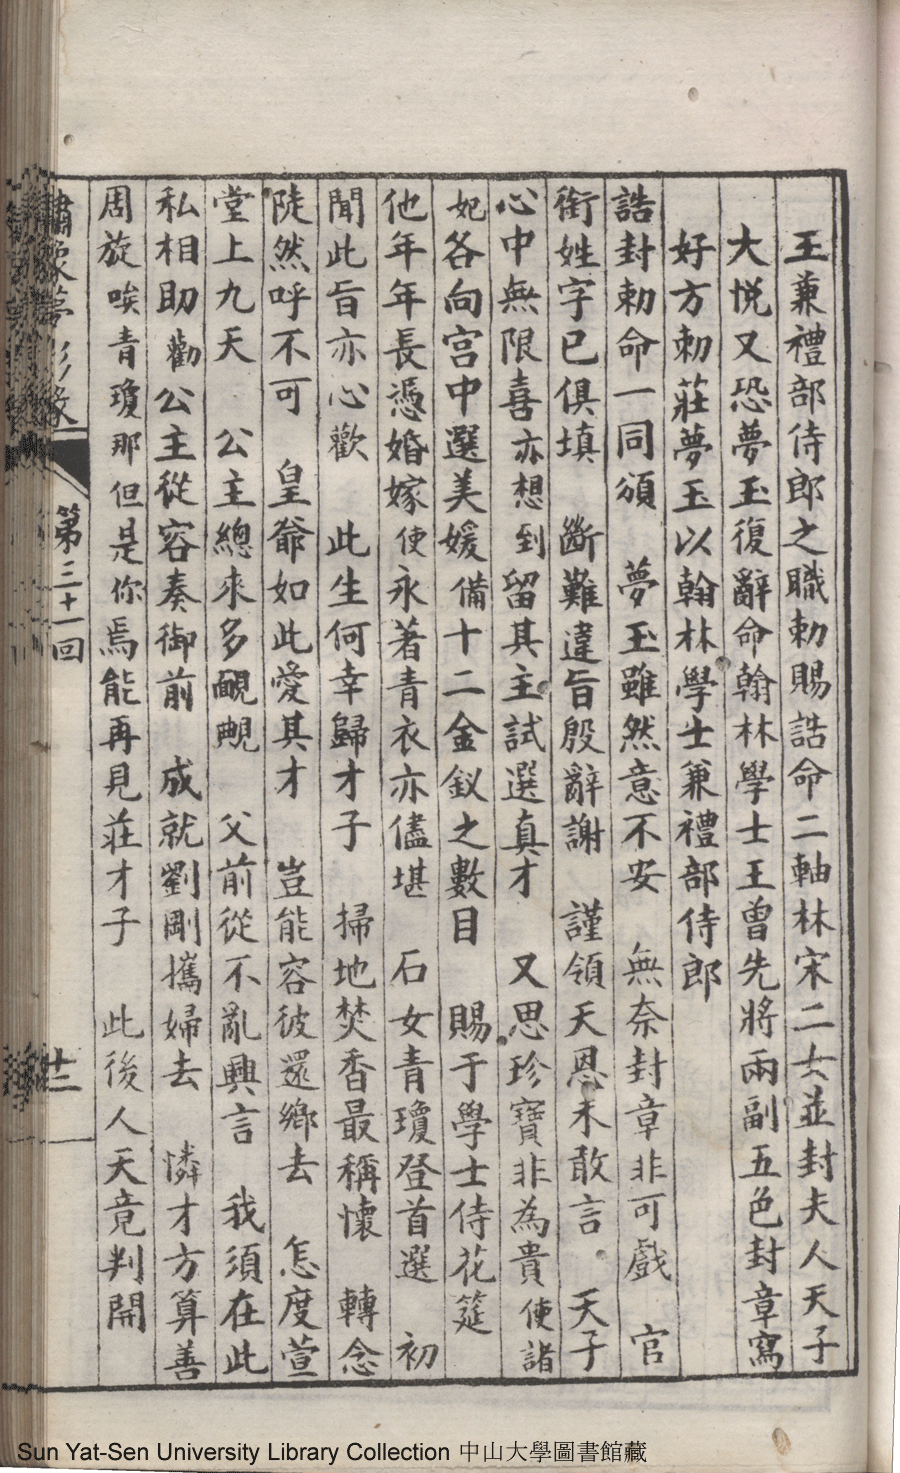 王兼禮部侍郎之職勅賜誥命二軸林宋二女並封夫人天子
大悅又恐夢玉復辭命翰林學士王曾先將兩副五色封章寫
好方勅莊夢玉以翰林學士兼禮部侍郎
誥封勅命一同頒 夢玉雖然意不安 無奈封章非可戲 官
銜姓字已俱填 斷難違旨殷辭謝 謹領天恩未敢言 天子
心中無限喜亦想到留其主試選真才 又思珍寶非為貴使諸
妃各向宮中選美媛備十二金釵之數目 賜于學士侍花筵
他年年長憑婚嫁使永著青衣亦儘堪 石女青瓊登首選 初
聞此旨亦心歡 此生何幸歸才子 掃地焚香最稱懷 轉念
陡然呼不可 皇爺如此愛其才 豈能容彼還鄉去 怎度萱
堂上九天 公主總來多靦覥 父前從不亂興言 我須在此
私相助勸公主從容奏御前 成就劉剛攜婦去 憐才方算善
周旋唉青瓊那但是你焉能再見莊才子 此後人天竟判開
繡像夢影緣
第三十一回
廿二
Sun Yat-Sen University Library Collection 中山大學圖書館藏